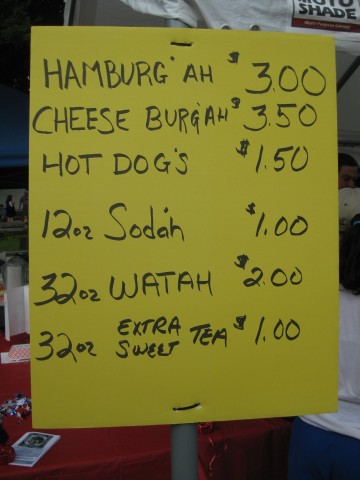 AUTO
SHADE
HAMBURG'AH $3.00
CHEESE BURG'AH $3.50
HOT DOG'S $1.50
12oz Soda'h $1.00
32oz WATAH $2.00
32oz EXTRA SWEET TEA $1.00